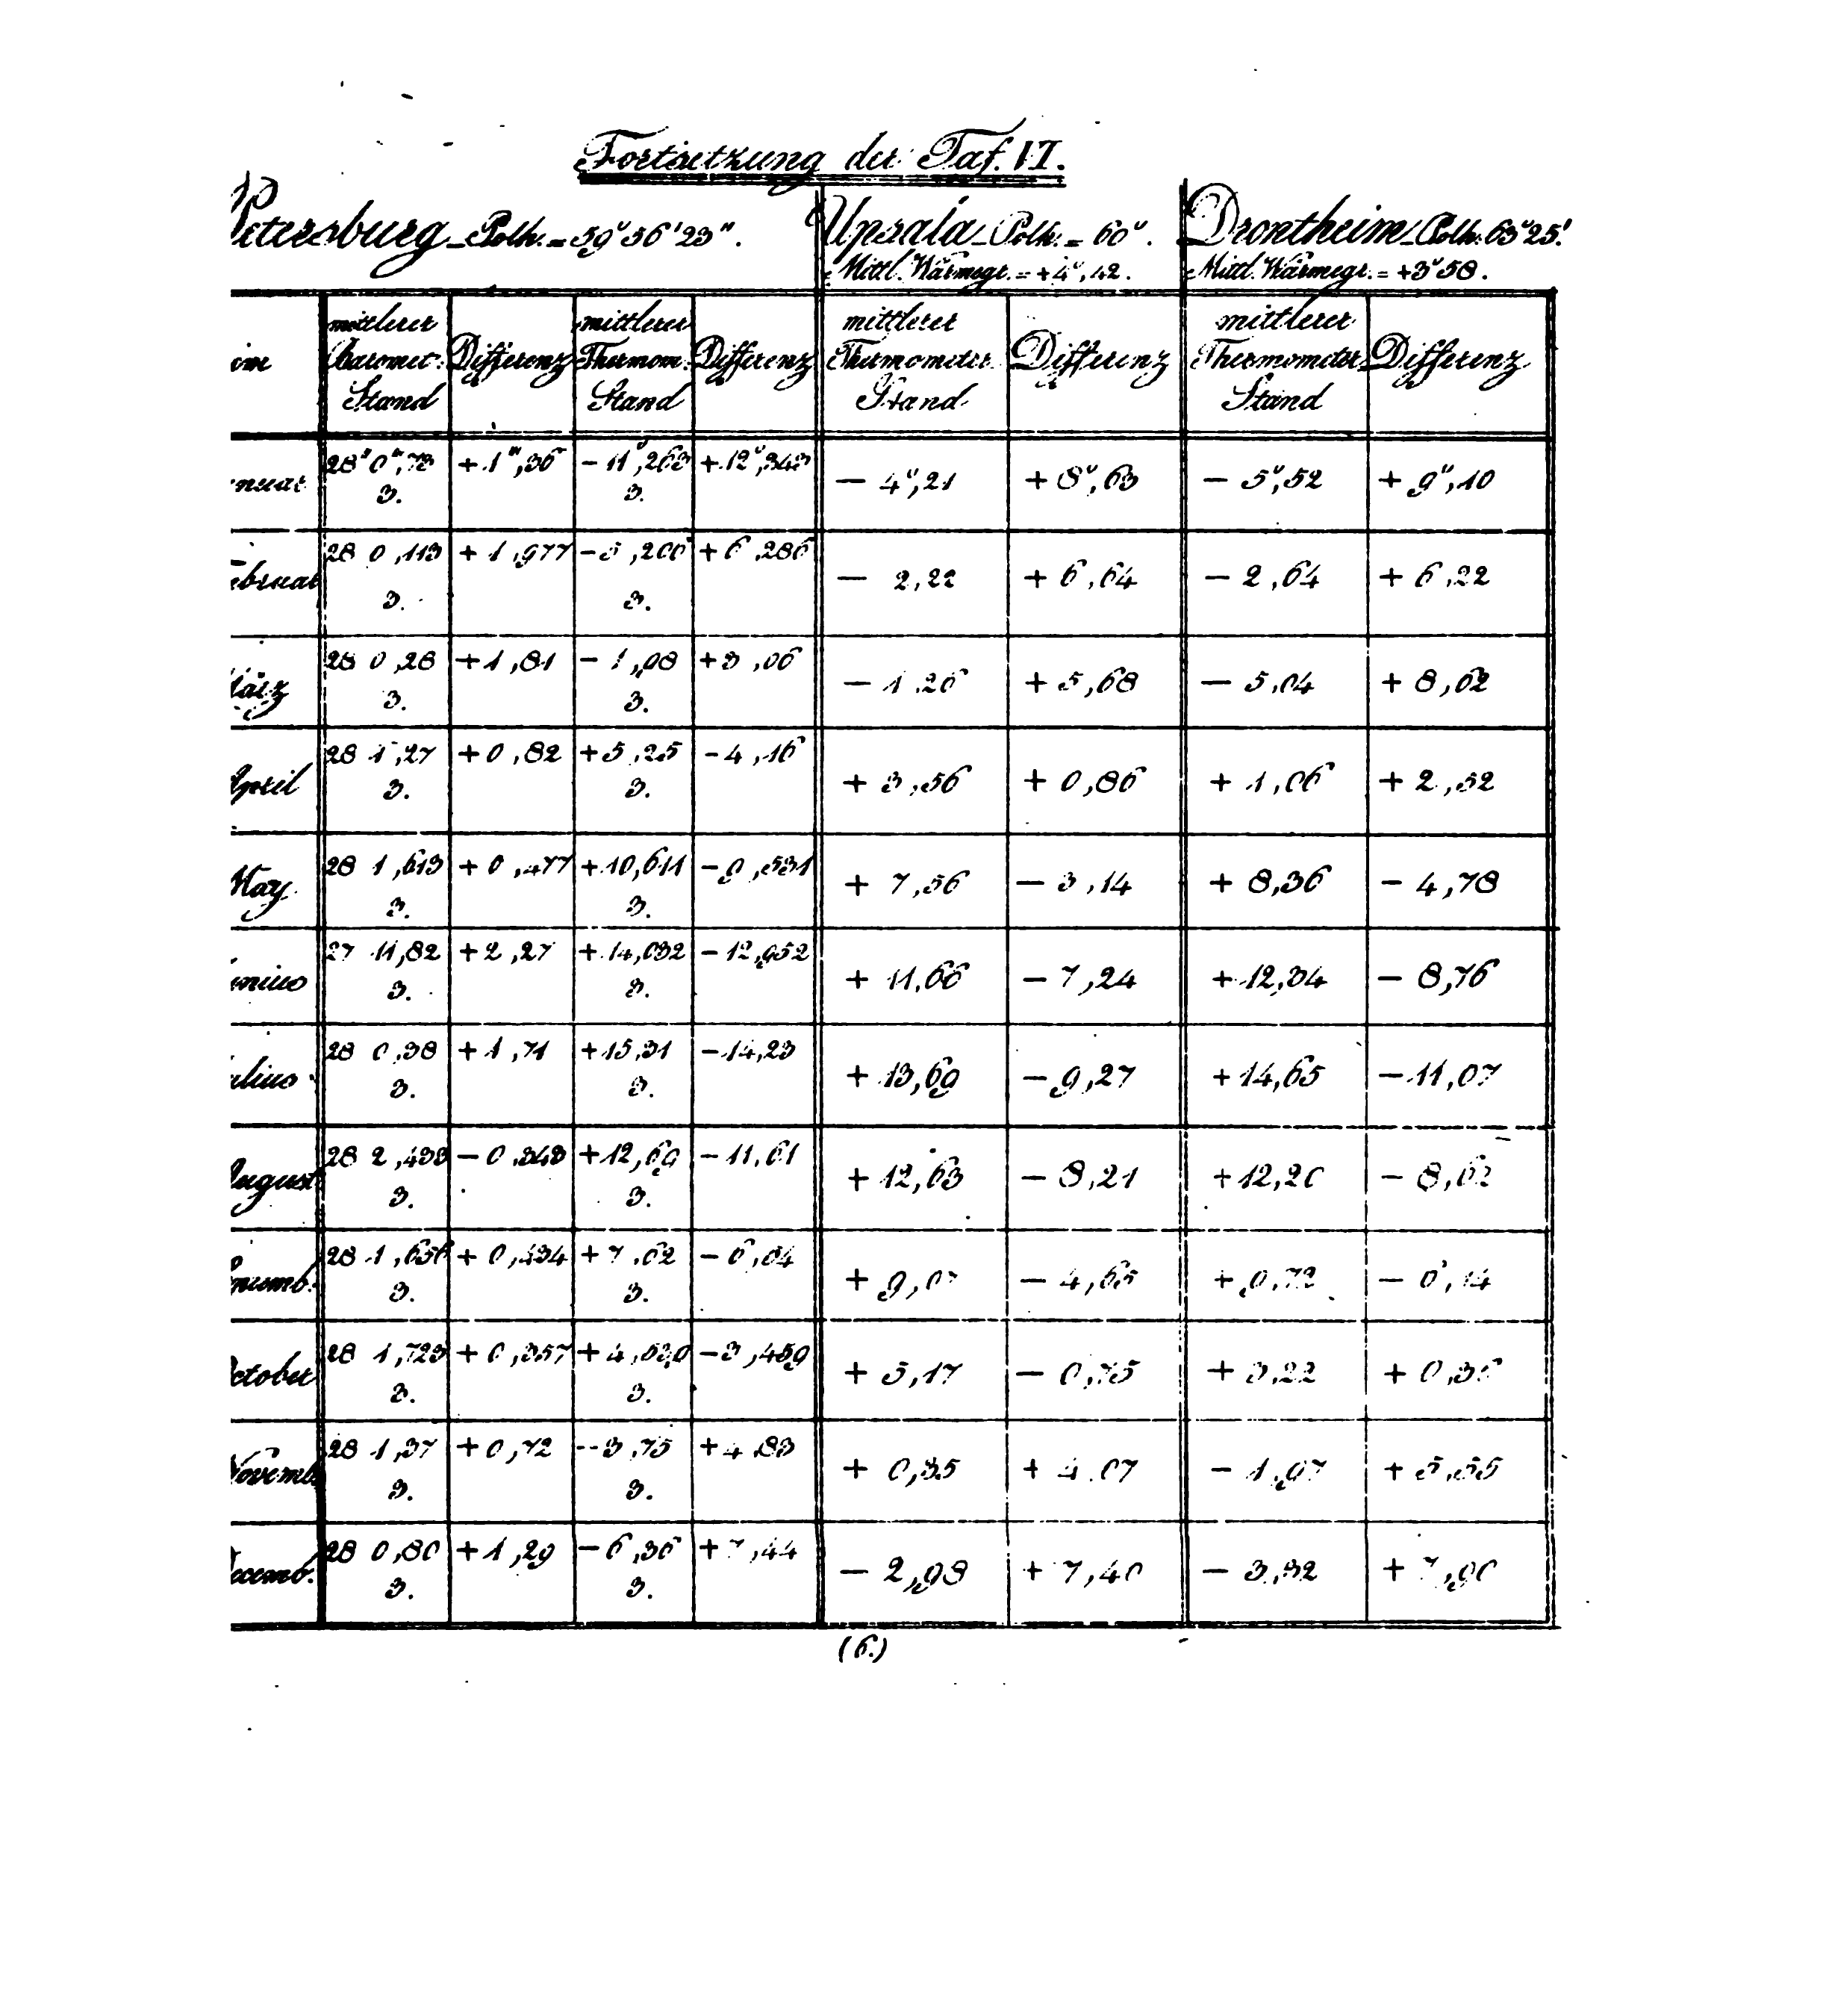 Fortsetzung der Taf. VI.
Petersburg – Polh. = 59° 56' 23".
Upsala – Polh. = 60°.
Drontheim – Polh. 63° 25'.
Mittl. Wärmegr. = +4°,42.
Mittl. Wärmegr. = +3°58.
im
mittlerer Baromet: Stand
Differenz
mittlerer Thermom: Stand
Differenz
mittlerer Thermometer Stand
Differenz
mittlerer Thermometer Stand
Differenz
nuar 28" 0"',73 3. +1"',36 −11°,263 3. +12°,343 − 4°,21 +8°,63 − 5°,52 + 9°,10
ebruar 28 0,113 3. +1,977 −5,206 3. +6,286 − 2,22 +6,64 − 2,64 +6,22
März 28 0,28 3. +1,81 −1,98 3. +3,06 − 1,26 +5,68 − 5,04 +8,62
April 28 1,27 3. +0,82 +5,25 3. −4,16 + 3,56 +0,86 + 1,06 +2,52
May 28 1,613 3. +0,477 +10,611 3. −9,531 + 7,56 − 3,14 + 8,36 − 4,78
unius 27 11,82 3. +2,27 +14,032 3. −12,952 + 11,66 − 7,24 +12,34 − 8,76
ulius 28 0,38 3. +1,71 +15,31 3. −14,23 + 13,69 − 9,27 +14,65 −11,07
August 28 2,433 3. −0,343 +12,69 3. −11,61 +12,63 − 8,21 +12,20 − 8,62
28 1,656 3. +0,434 +7,62 3. −6,54 + 9,07 − 4,65 +9,72 − 6,14
October 28 1,723 3. +0,357 +4,539 3. −3,459 + 5,17 − 0,75 + 3,22 +0,36
Novemb 28 1,37 3. +0,72 −3,75 3. +4,83 + 0,35 +4,07 − 1,97 +5,55
ecemb. 28 0,80 3. +1,29 −6,36 3. +7,44 − 2,98 +7,40 − 3,32 +7,90
(6.)